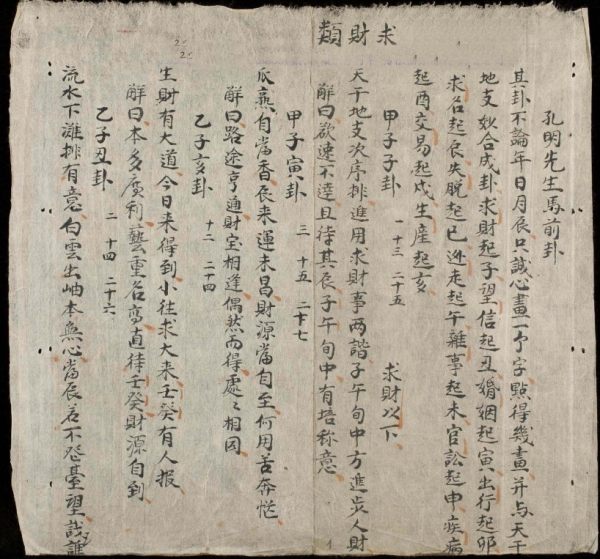 求財類
孔明先生馬前卦
其卦不論年日月辰只誠心畫一个字點得幾畫并与天干
地支妙合成卦求財起子望信起丑婚姻起寅出行起卯
求名起辰失脫起巳逃走起午雜事起未官訟起申疾病
起酉交易起戌生產起亥
甲子子卦 一 十三 二十五 求財以下
天干地支次序排進用求財事两諧子午旬中方進步人財
解曰欲速不達且待其辰子午旬中有培称意
甲子寅卦 三 十五 二十七
瓜熟自當香辰来運未昌財源當自至何用苦奔忙
解曰路途亨通財宝相逢偶然而得處〻相因
乙子亥卦 十二 二十四
生財有大道今日来得到小往求大来壬癸有人报
解曰本多廣利藝重名高直待壬癸財源自到
乙子丑卦 二 十四 二十六
流水下灘排有意白雲出岫本無心當辰若不登臺望